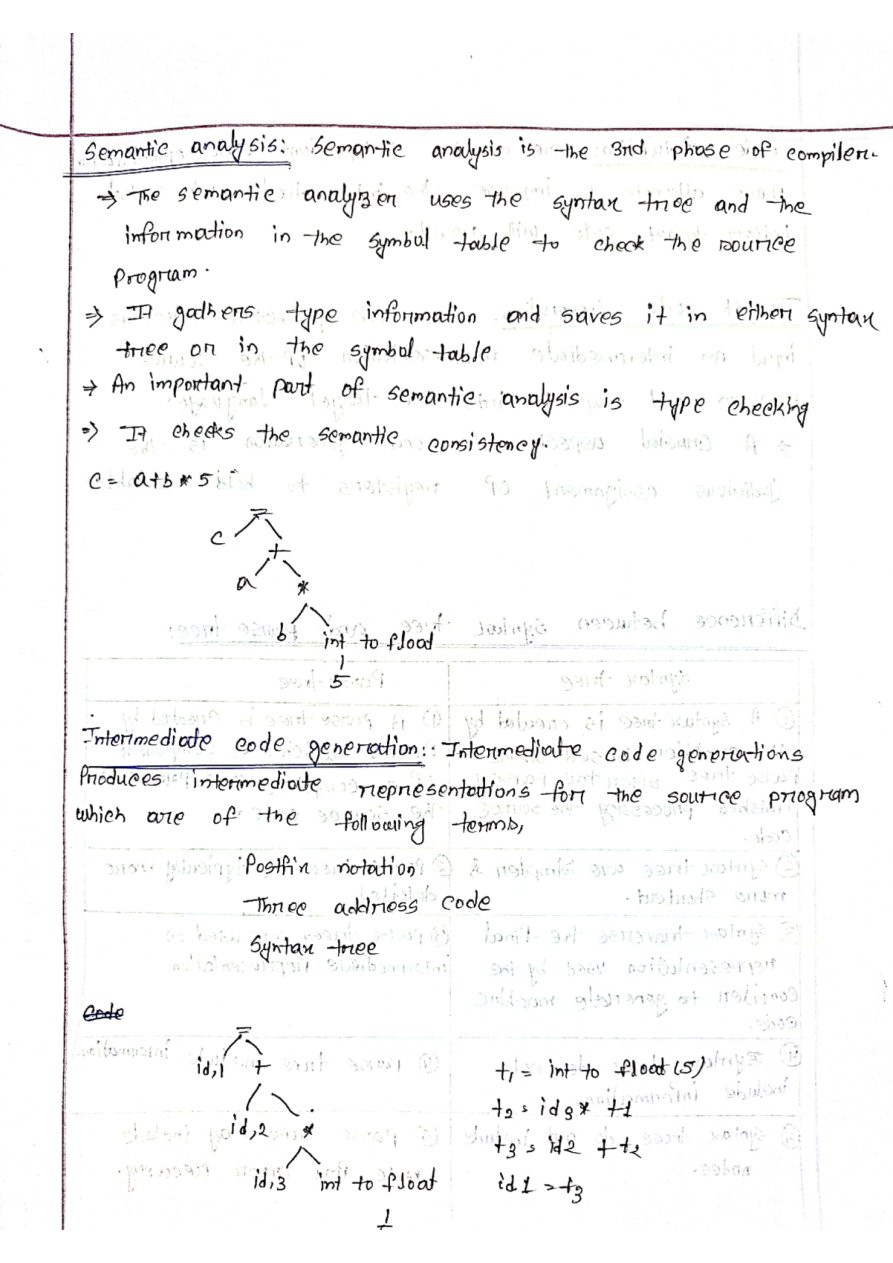 Semantic analysis: Semantic analysis is the 3rd phase of compiler.
→ The semantic analyzer uses the syntax tree and the
information in the symbol table to check the source
program.
⇒ It gathers type information and saves it in either syntax
tree or in the symbol table
→ An important part of semantic analysis is type checking
⇒ It checks the semantic consistency.
C = a+b * 5
=
c +
a *
b int to float
5
Intermediate code generation:: Intermediate code generations
Produces intermediate representations for the source program
which are of the following terms,
Postfix notation
Three address code
Syntax tree
=
id,1 +
id,2 *
id,3 int to float
1
t1 = int to float (5)
t2 = id3 * t1
t3 = id2 + t2
id1 = t3